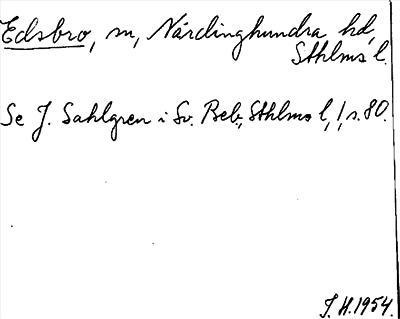 Edsbro, sn, Närdinghundra hd,
Sthlms l.
Se J. Sahlgren i Sv. Beb., Sthlms l, 1, s. 80.
J. H. 1954.